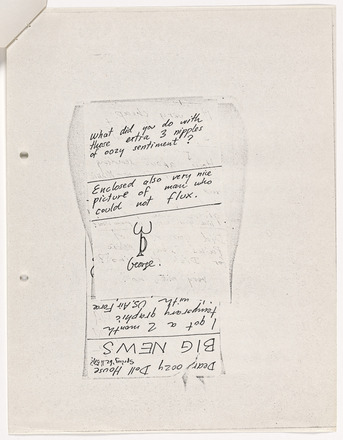 What did you do with
those extra 3 nipples
of oozy sentiment?
Enclosed also very nice
picture of man who
could not flux.
George.
Dear, oozy Doll House
BIG NEWS
I got a 2 month
temporary graphic
with US Air Force